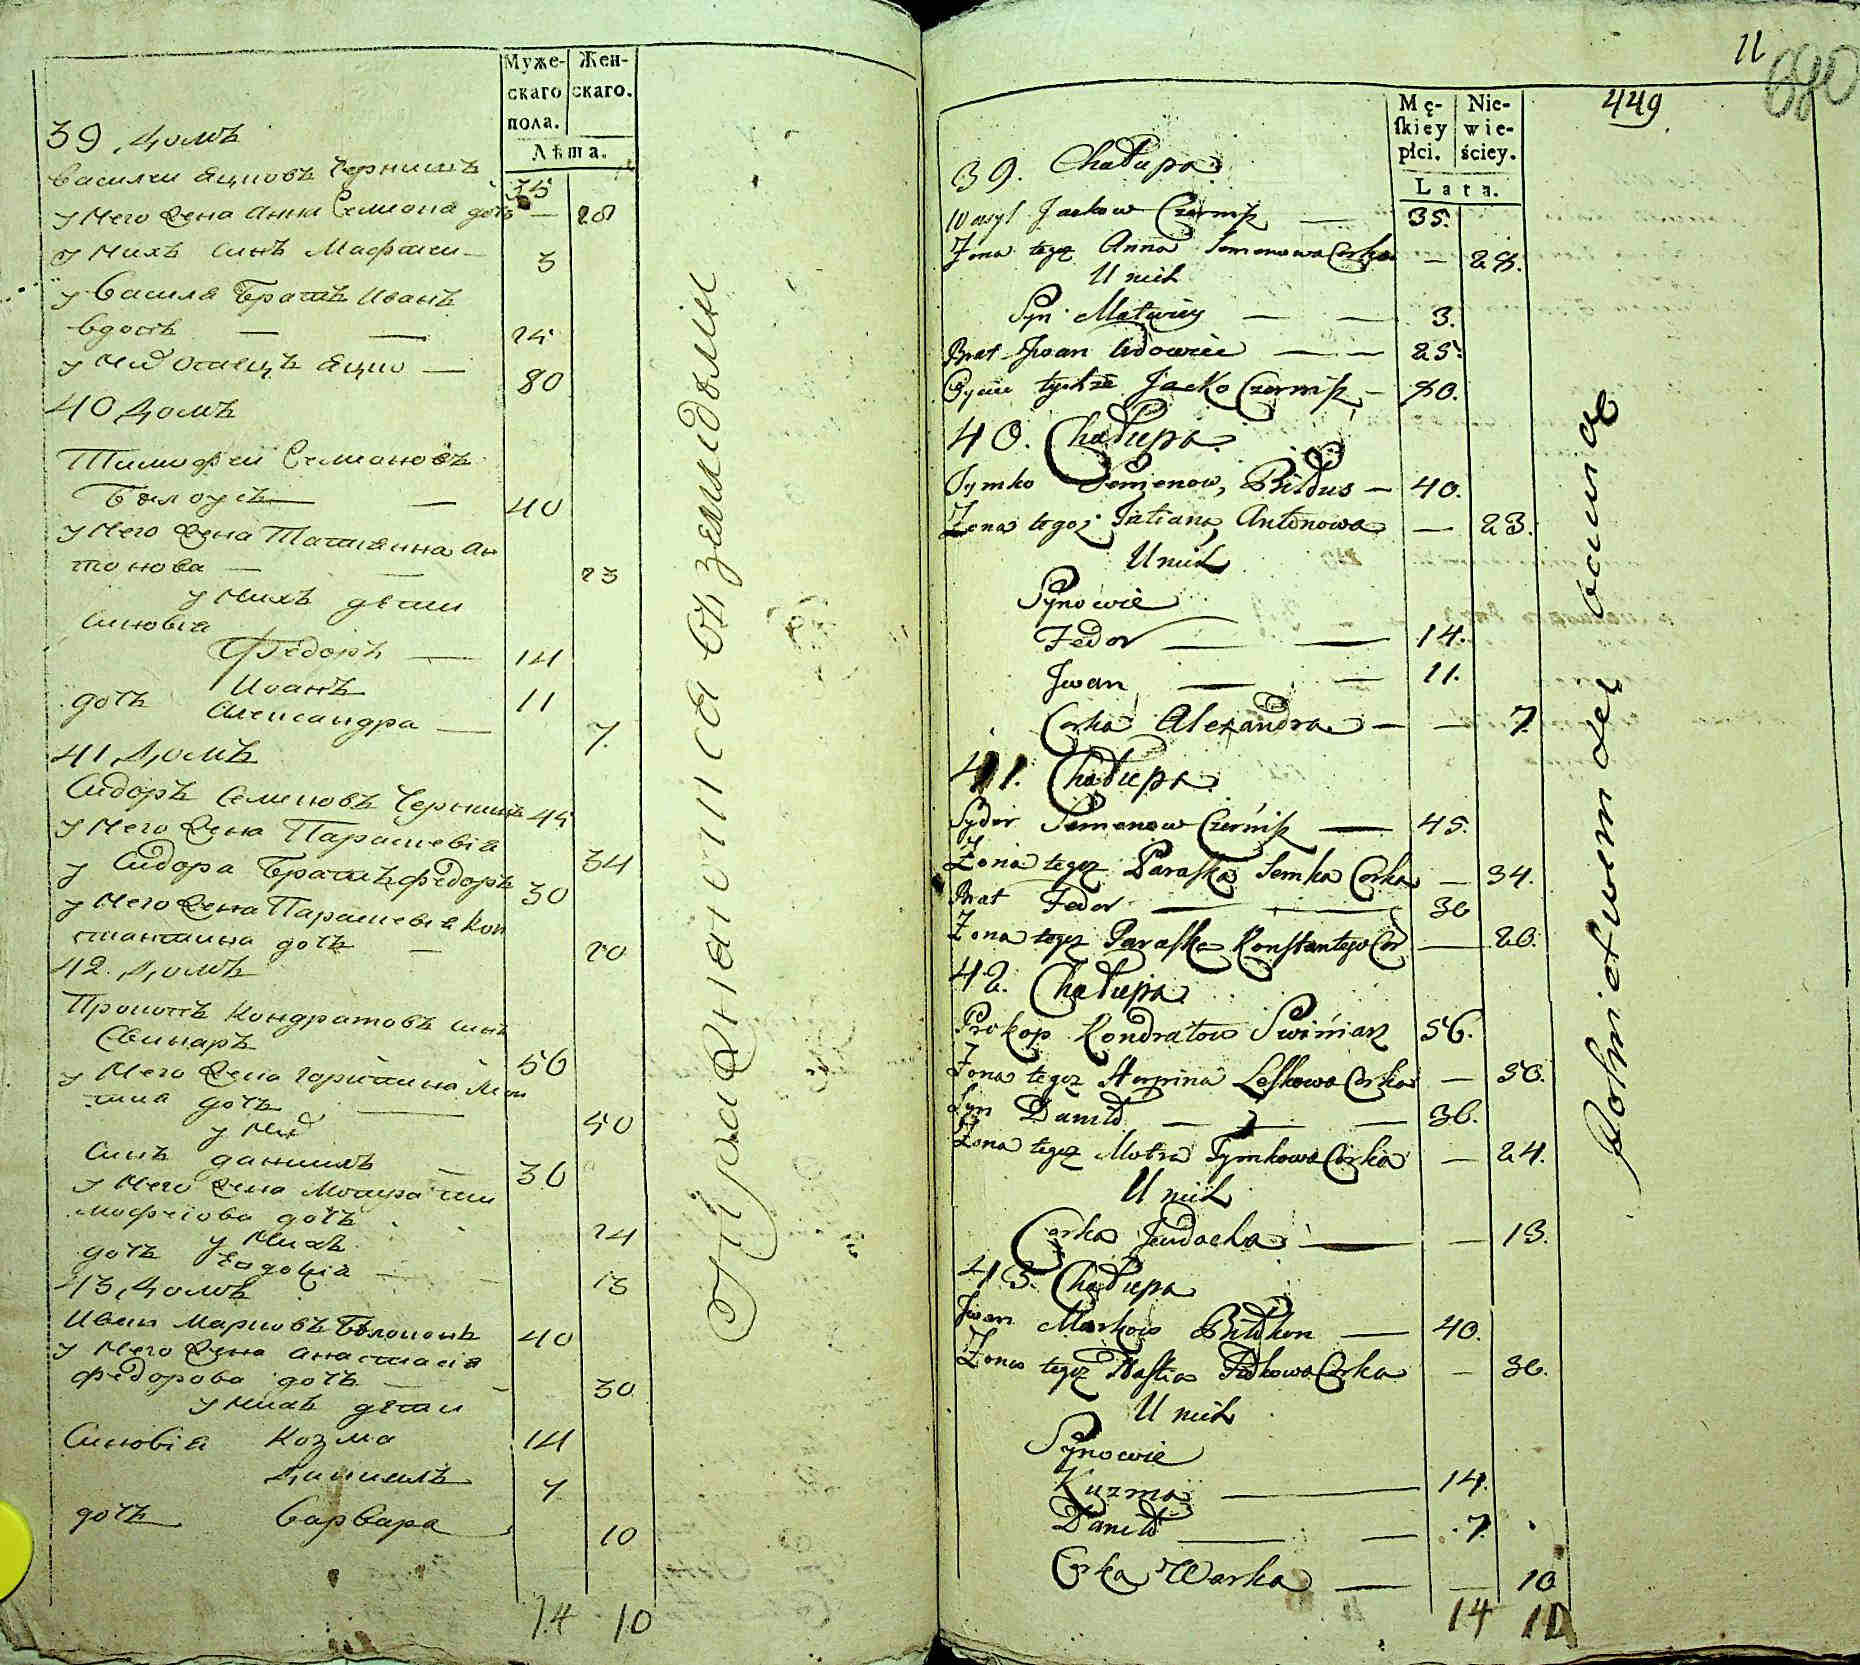 Муже-
скаго
пола.
Жен-
скаго.
Лѣта.
39, Домъ
Василеи Яцковъ Чернишъ 35
у него жена Анна Семиона дочь — 28
у нихъ синъ Матфеи — 3
у Василя братъ Иванъ
вдовъ — — 25
у них отецъ Яцко — 80
40 Домъ
Тимофеи Семионовъ
Белоусъ — 40
у него жена Татиянна Ан
тонова — — 23
у нихъ дети
Синовия
Федоръ — 14
Иванъ 11
дочь Александра — 7.
41, Домъ
Сидоръ Семионовъ Чернишъ 45
у него жена Парасчевия 34
у Сидора братъ Федоръ 30
у него жена Парасчевия Кон
стантина дочь — 20
42. Домъ
Прокопъ Кондратовъ синъ
Свинаръ 56
у него жена Горпина
дочь — 50
у них
Синъ Даниилъ — 36
у него жена Мотра Ти
мофеiова дочь 24
у нихъ
дочь Евдокия — 13
43, Домъ
Иванъ Марковъ Белоконь 40
у него жена Анастасия
Федорова дочь — 30
у нихъ дети
Синовiя Козма 14
Даниилъ 7
дочь Варвара 10
14 10
11
680
449
Mę-
ſkiey
płci.
Nie-
wie-
ściey.
Lata.
39. Chałupa
Wasyl Jackow Czernisz — 35.
Żona tegoż Anna Semenowa Corka — 28.
U nich
Syn Matwiey — — 3.
Brat Jwan Wdowiec — — 25.
Oyciec tychże Jacko Czernisz — 80.
40. Chałupa
Tymko Semenow, Biłous — 40.
Żona tegoż Tatiana Antonowa — 23.
U nich
Synowie
Fedor — — 14.
Jwan — — 11.
Corka Alexandra — — 7
41. Chałupa
Sydor Semenow Czernisz — 45.
Żona tegoż Paraska Semka Corka — 34.
Brat Fedor — — 30
Żona tegoż Paraska Konstantego Cor — 20.
42. Chałupa
Prokop Kondratow Swiniarz 56.
Żona tegoż Horpina Leskowa Corka — 50.
Syn Daniło — — 36.
Żona tegoż Motra Tymkowa Corka — 24.
U nich
Corka Jewdocha — — 13.
43. Chałupa
Jwan Markow Biłokon — 40.
Żona tegoż Nastia Fedkowa Corka — 30.
U nich
Synowie
Kuzma — 14.
Daniło — — 7.
Corka Warka — — 10
14 10